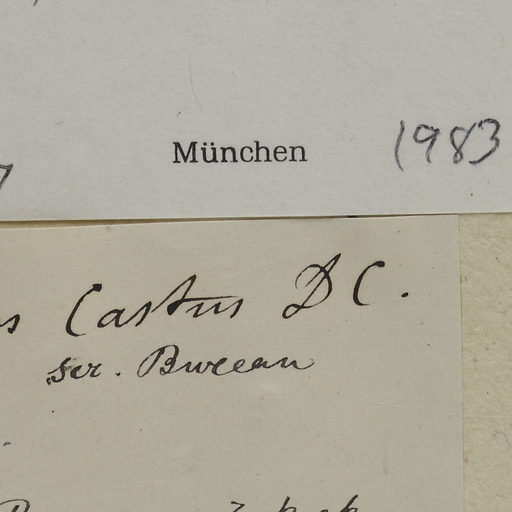 München 1983
Castus DC.
scr. Bureau